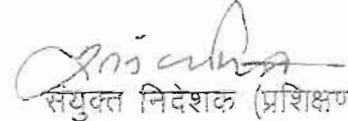 संयुक्त निदेशक (प्रशिक्षण